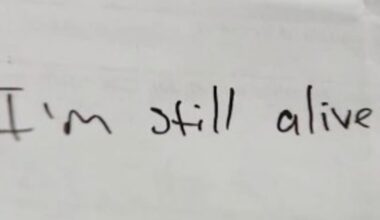 I'm still alive